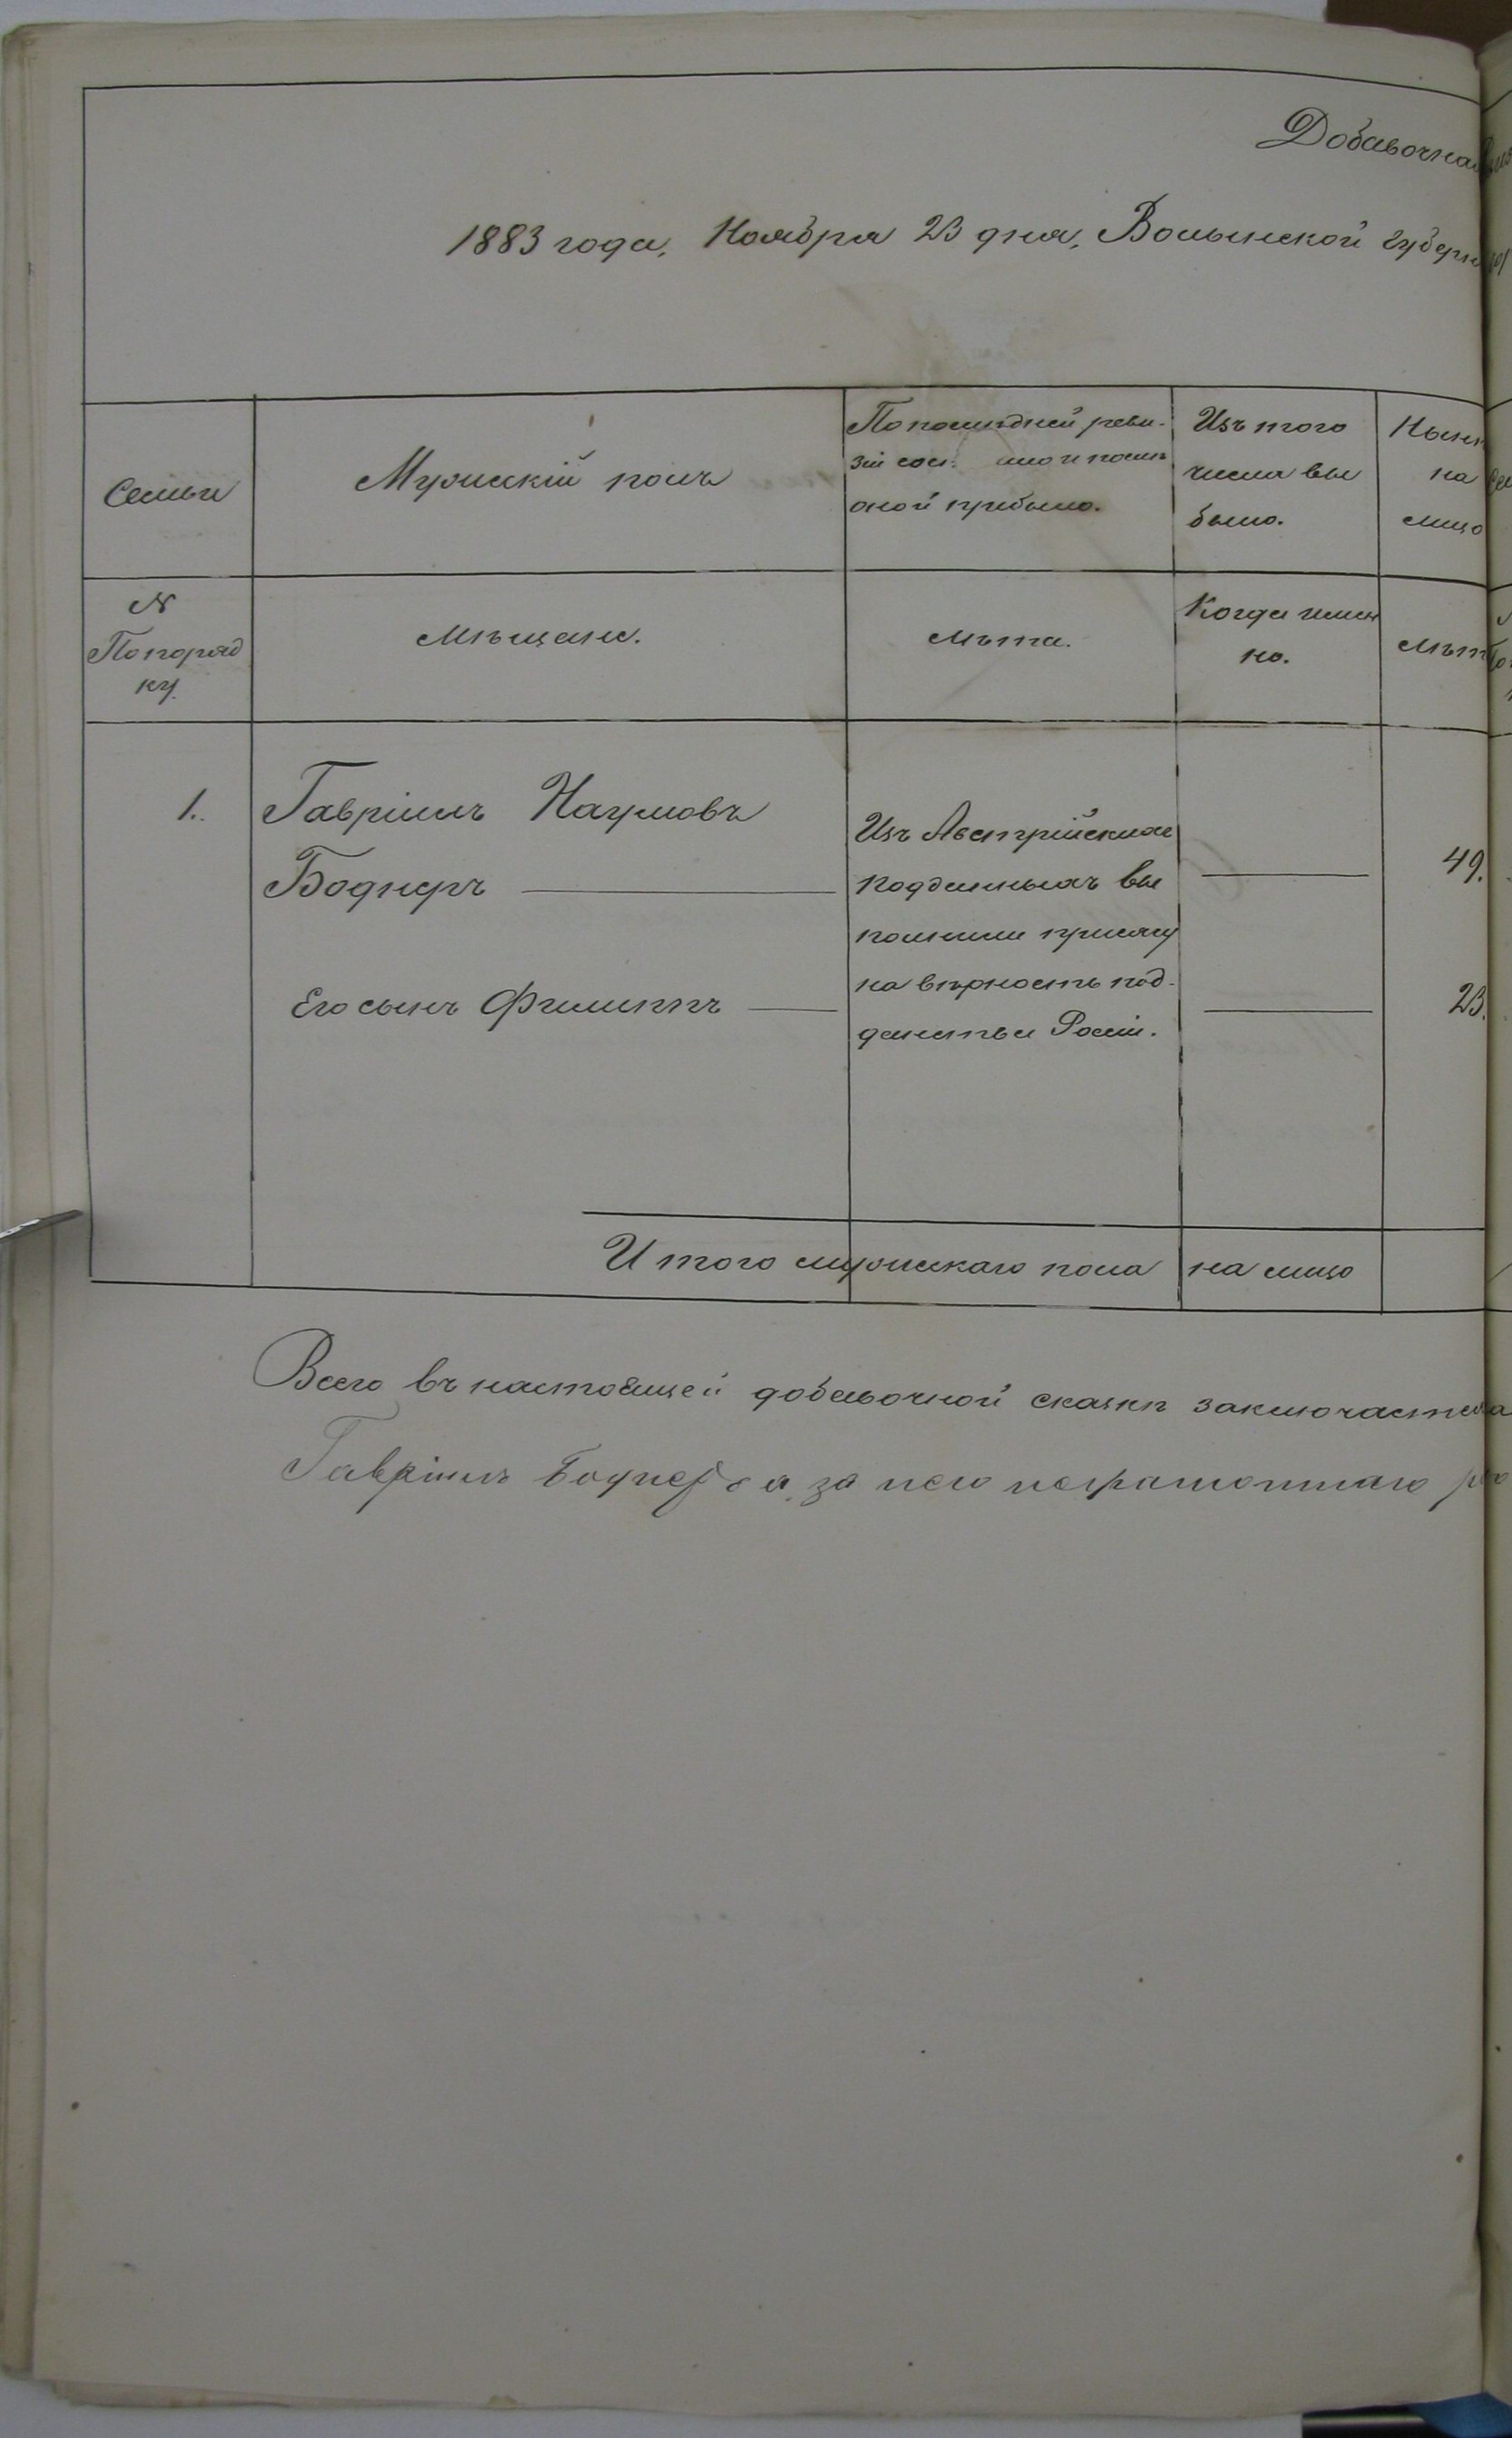 Добавочная
1883 года, Ноября 23 дня, Волынской губерн
Семьи
Мужескій полъ
По послѣдней реви-
зіи сос. ило и послѣ
оной прибыло.
Изъ того
числа вы
было.
Нынѣ
на
лицо
№
По поряд
ку.
Мѣщане.
Лѣта.
Когда имен
но.
Лѣт
1. Гавріилъ Наумовъ
Боднеръ
Его сынъ Филиппъ
Изъ Австрійскихъ
подданныхъ вы
полнили присягу
на вѣрность под-
данства Россіи.
49.
23.
Итого мужескаго пола на лицо
Всего въ настоящей добавочной сказкѣ заключается
Гавріилъ Боднеръ а за него неграмотнаго